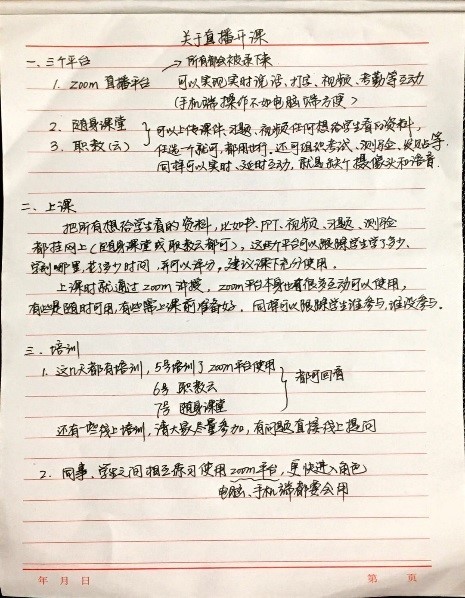 关于直播开课
一、三个平台 → 所有都会被录下来
1. zoom 直播平台 可以实现实时说话、打字、视频、考勤等互动
(手机端操作不如电脑端方便)
2. 随身课堂 可以上传课件、习题、视频任何想给学生看的资料,
3. 职教(云) 任选一个就可,都用也行。还可组织考试、测验、发贴等.
同样可以实时、延时互动,就是缺个摄像头和语音.
二、上课
把所有想给学生看的资料,比如书、PPT、视频、习题、测验
都挂网上(随身课堂或职教云都可),这两个平台可以跟踪学生学了多少、
学到哪里,花了多少时间,并可以评分,建议课下充分使用。
上课时就通过zoom讲授。zoom平台本身也有很多互动可以使用,
有些是随时可用,有些需上课前准备好。同样可以跟踪学生谁参与,谁没参与。
三、培训
1. 这几天都有培训,5号培训了zoom平台使用
6号 职教云 都可回看
7号 随身课堂
还有一些线上培训,请大家尽量参加,有问题直接线上提问
2. 同事、学生之间相互练习使用zoom平台,更快进入角色
电脑、手机端都要会用
年 月 日 第 页